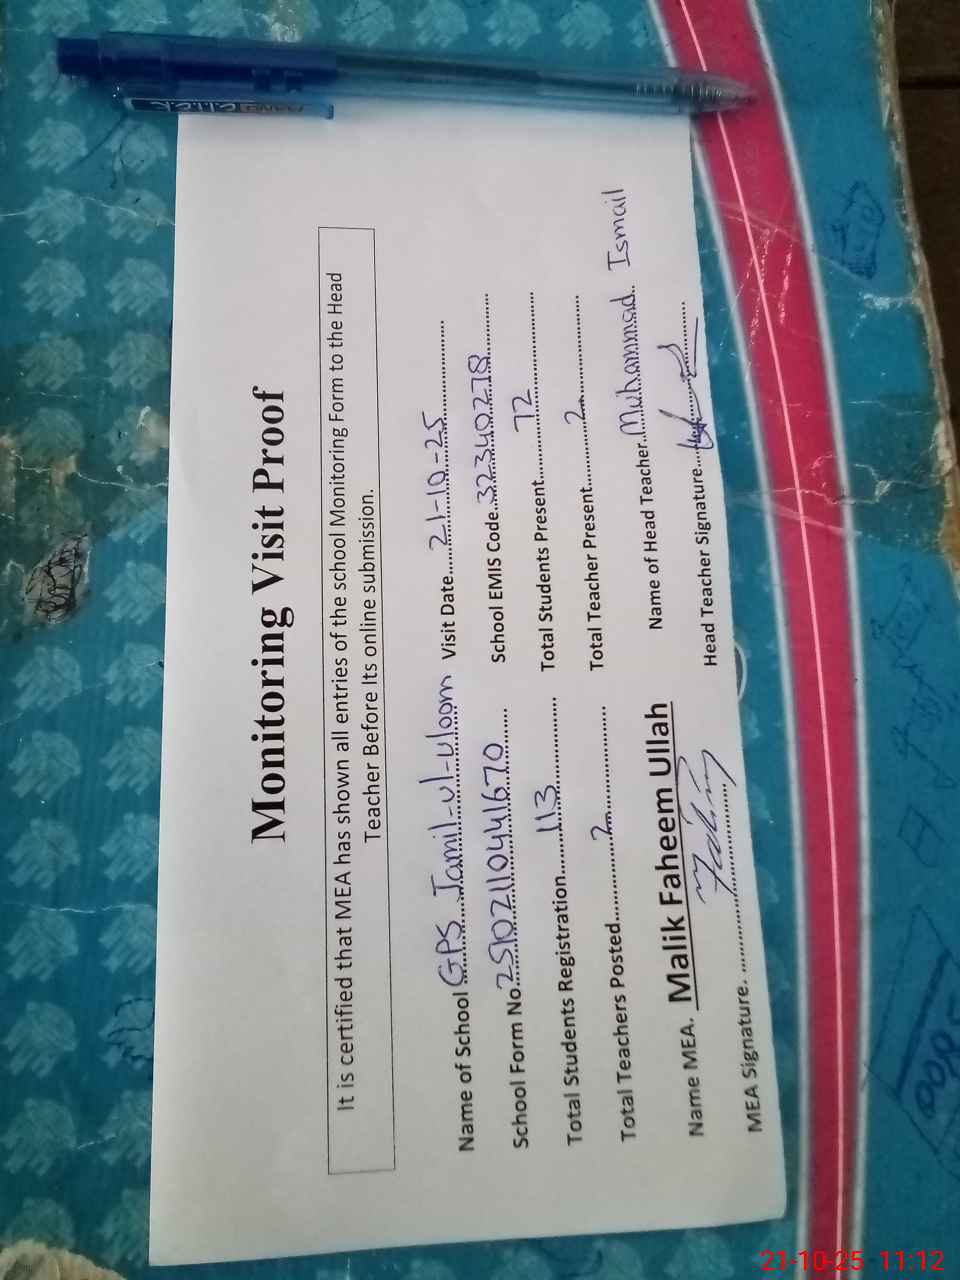 Monitoring Visit Proof
It is certified that MEA has shown all entries of the school Monitoring Form to the Head
Teacher Before Its online submission.
Name of School GPS Jamil-ul-uloom Visit Date 21-10-25
School Form No. 25102110441670 School EMIS Code 32340278
Total Students Registration 113 Total Students Present 72
Total Teachers Posted 2 Total Teacher Present 2
Name MEA. Malik Faheem Ullah Name of Head Teacher Muhammad Ismail
MEA Signature. Head Teacher Signature
click
21-10-25 11:12